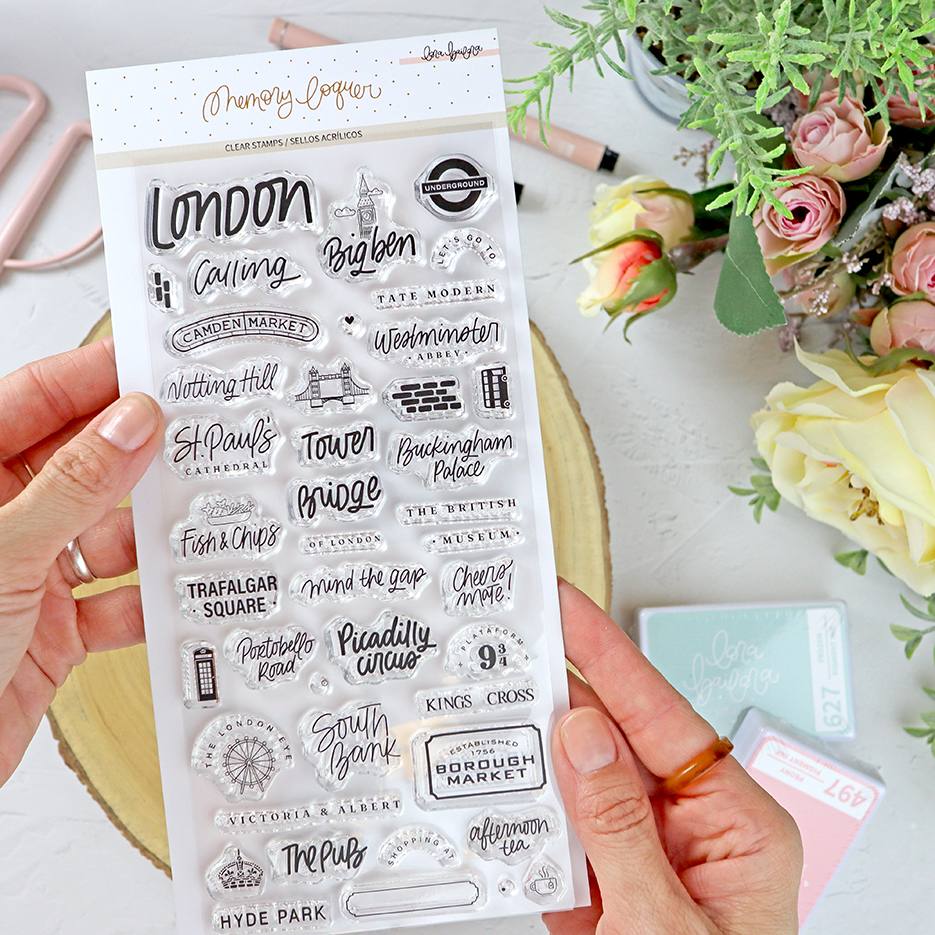 lora bailora
Memory loquer
CLEAR STAMPS / SELLOS ACRÍLICOS
London
Big ben
UNDERGROUND
Calling
LET'S GO TO
TATE MODERN
CAMDEN MARKET
Westminster
• ABBEY •
Notting Hill
St. Paul's
CATHEDRAL
Tower
Buckingham
Palace
Bridge
THE BRITISH
• MUSEUM •
Fish & Chips
OF LONDON
TRAFALGAR
• SQUARE •
mind the gap
Cheers
mate!
Portobello
Road
Picadilly
circus
PLATAFORM
9 3/4
KINGS CROSS
THE LONDON EYE
South
Bank
ESTABLISHED
1756
BOROUGH
MARKET
VICTORIA & ALBERT
The Pub
SHOPPING AT
afternoon
tea
HYDE PARK
lora
bailora
627
PEONY
PIGMENT INK
497